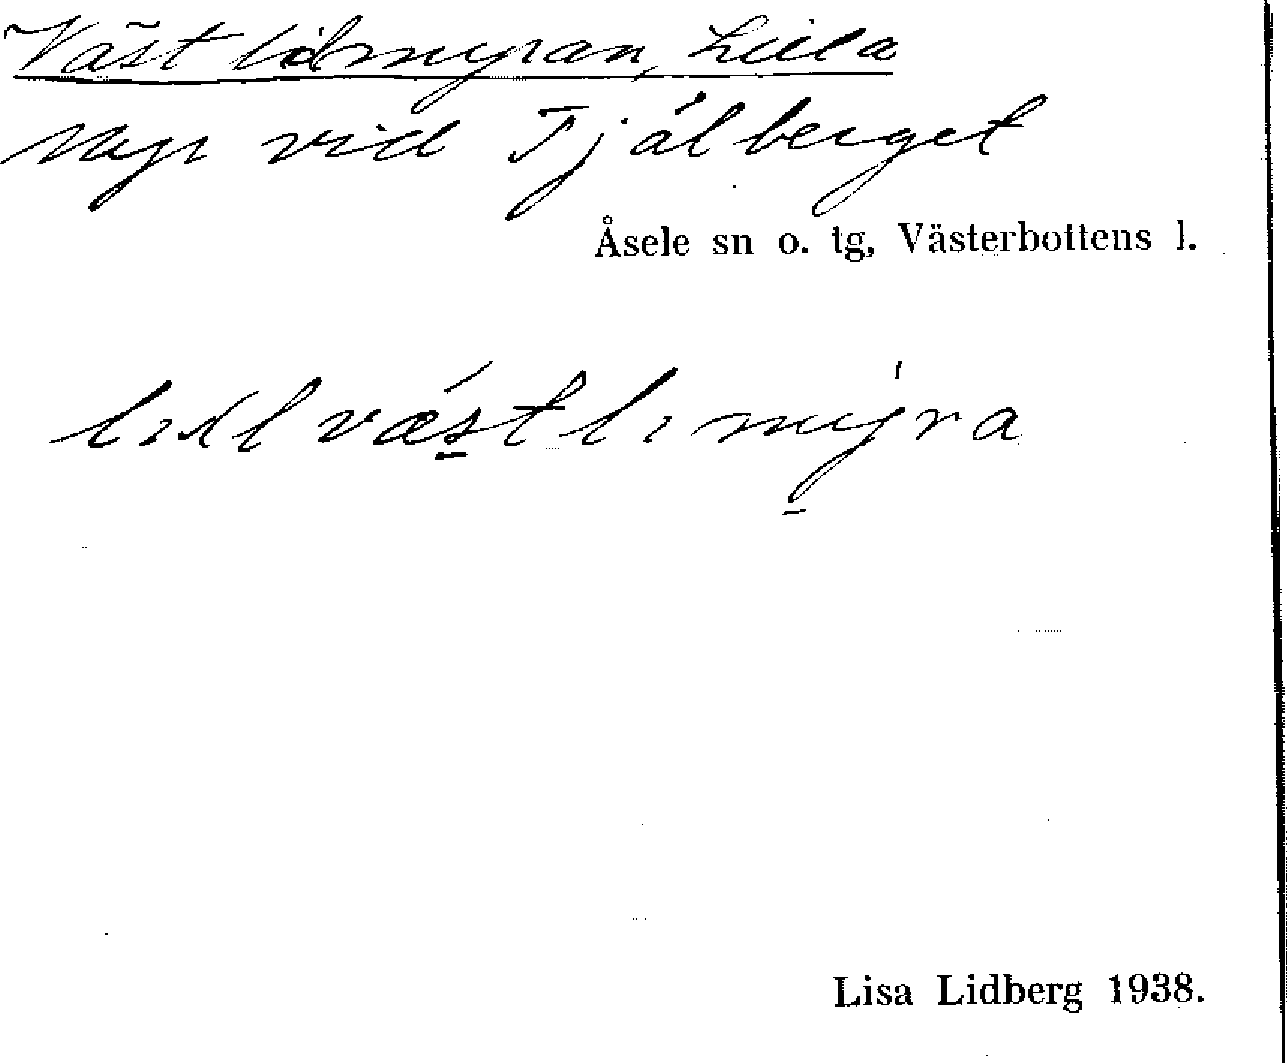 Västlidmyran, Lilla
Myr vid Tjälberget
Åsele sn o. tg, Västerbottens l.
Lisa Lidberg 1938.